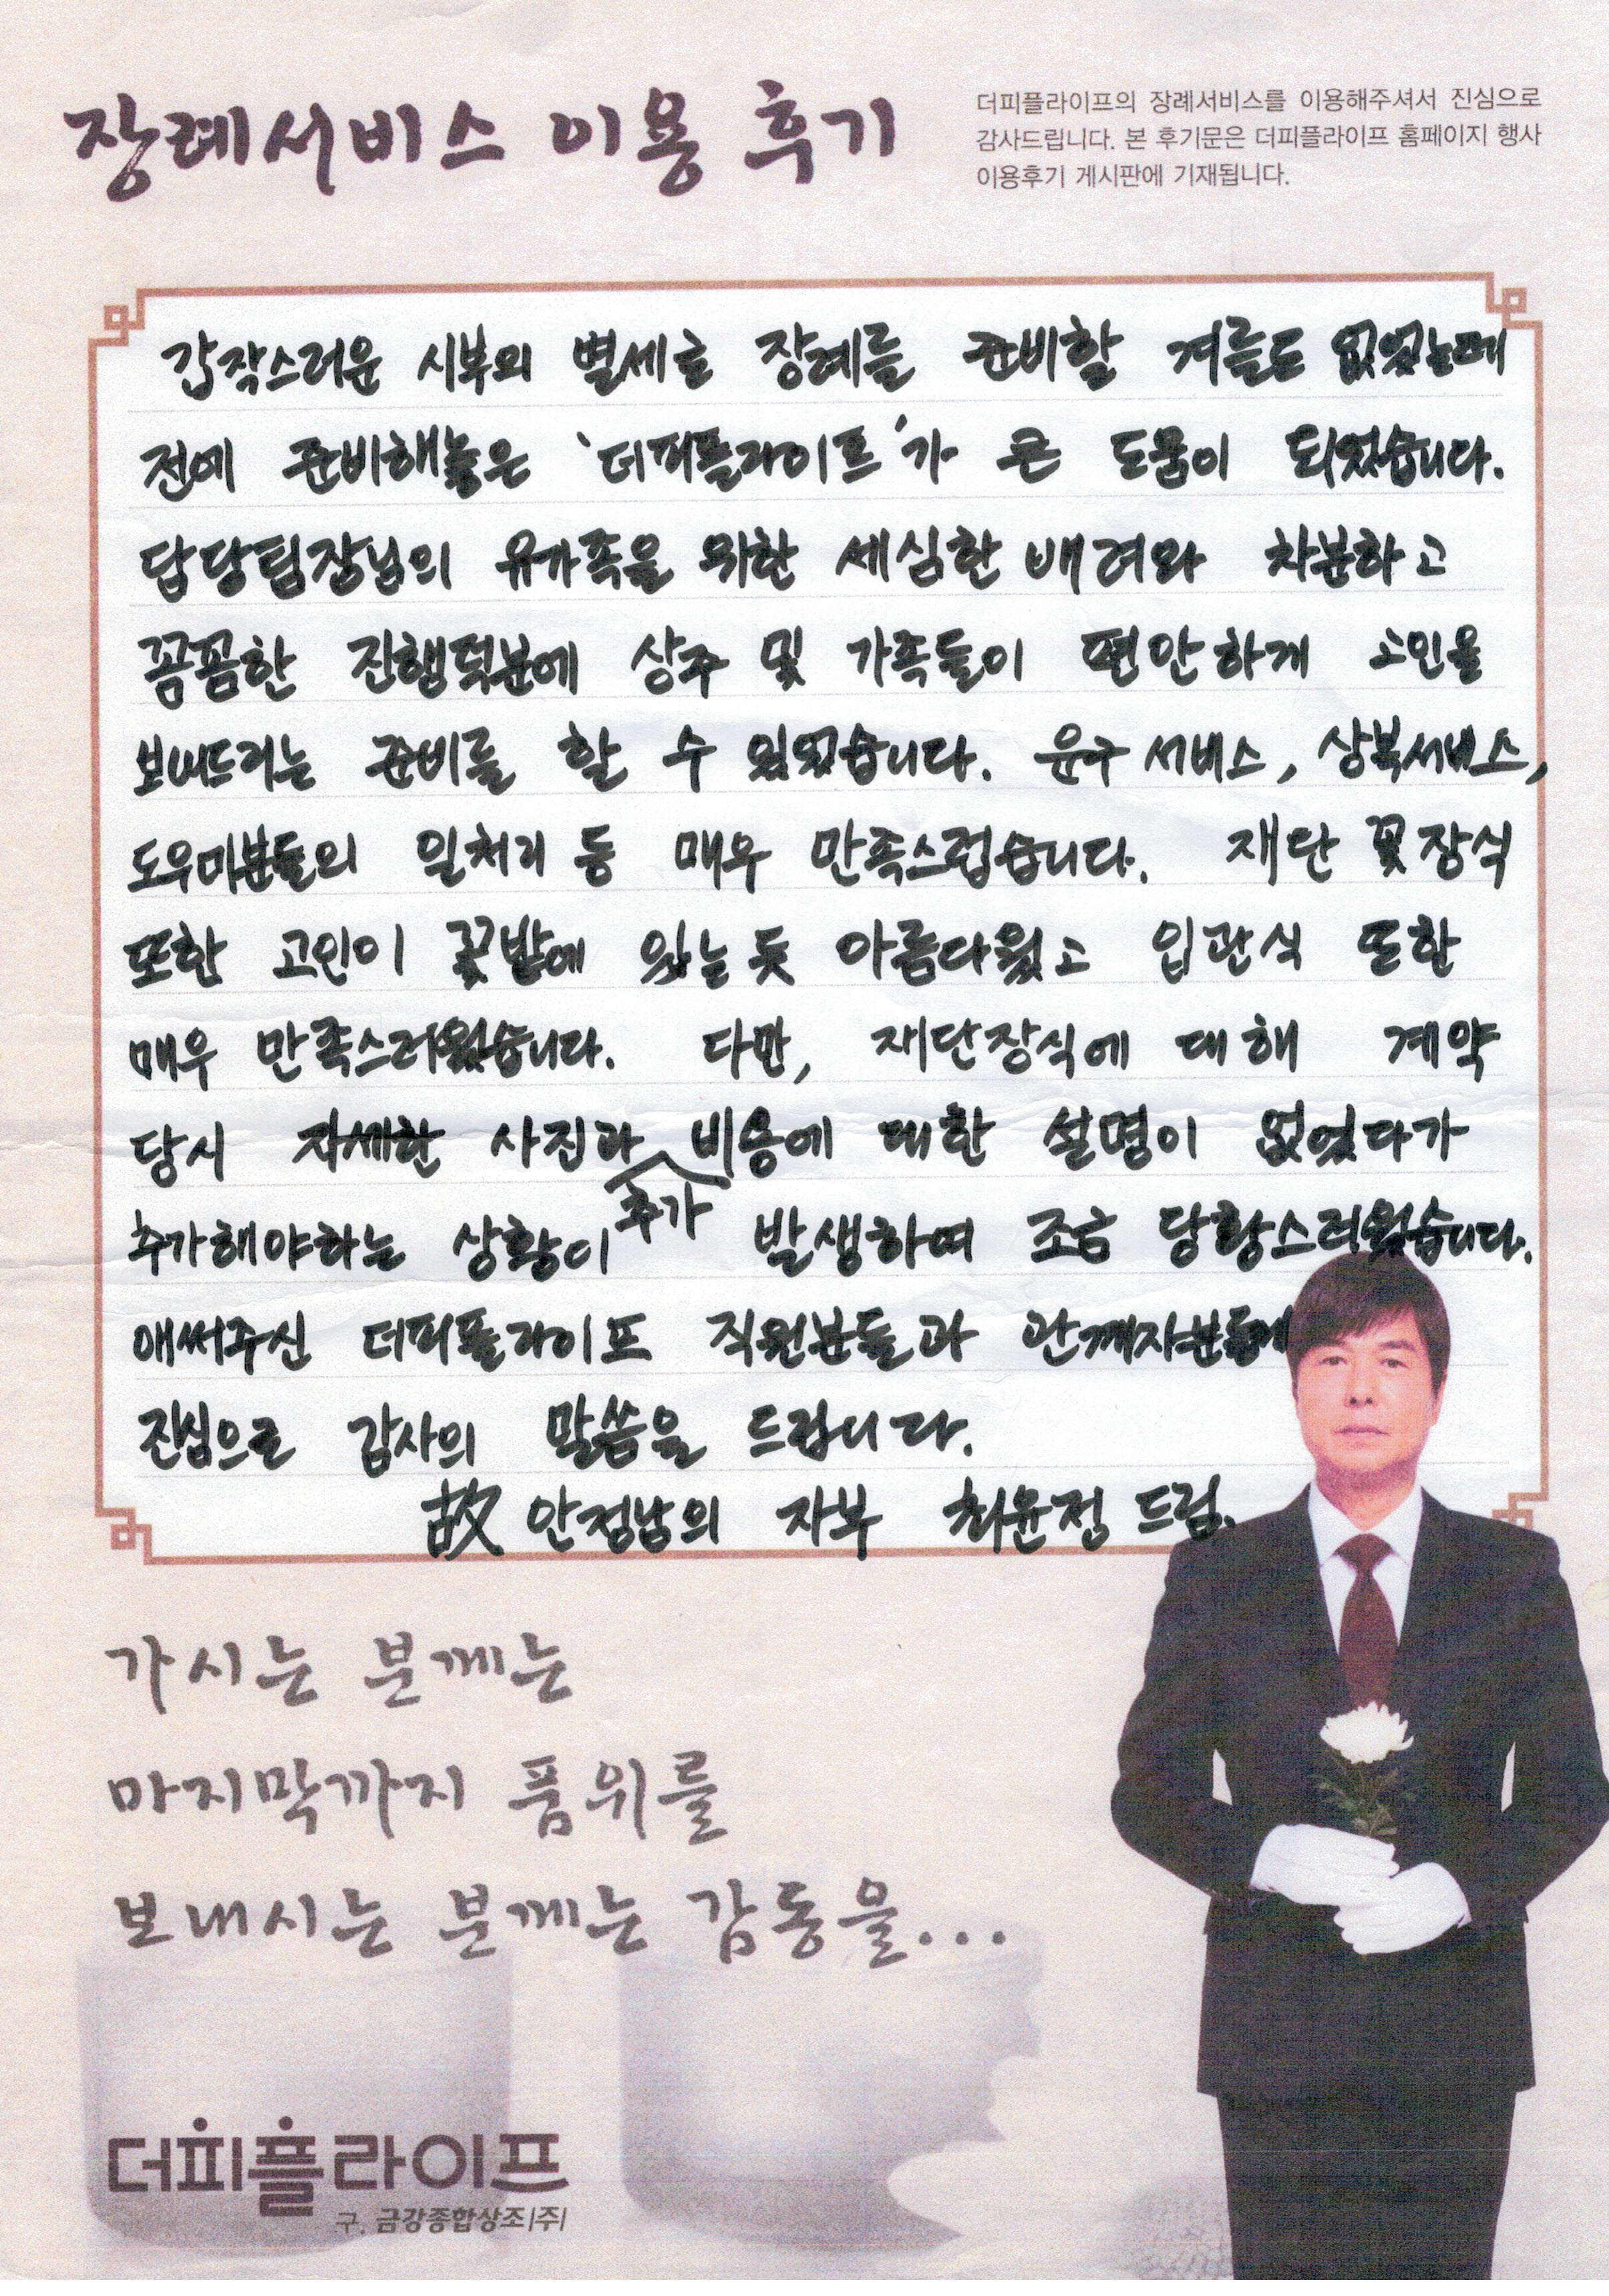 장례서비스 이용 후기
더피플라이프의 장례서비스를 이용해주셔서 진심으로
감사드립니다. 본 후기문은 더피플라이프 홈페이지 행사
이용후기 게시판에 기재됩니다.
갑작스러운 시부의 별세로 장례를 준비할 겨를도 없었는데
전에 준비해놓은 '더피플라이프'가 큰 도움이 되었습니다.
담당팀장님의 유가족을 위한 세심한 배려와 차분하고
꼼꼼한 진행덕분에 상주 및 가족들이 편안하게 고인을
보내드리는 준비를 할 수 있었습니다. 운구 서비스, 상복서비스,
도우미분들의 일처리 등 매우 만족스럽습니다. 재단 꽃장식
또한 고인이 꽃밭에 있는 듯 아름다웠고 입관식 또한
매우 만족스러웠습니다. 다만, 재단장식에 대해 계약
당시 자세한 사진과 추가 비용에 대한 설명이 없었다가
추가해야하는 상황이 발생하여 조금 당황스러웠습니다.
애써주신 더피플라이프 직원분들과 관계자분들께
진심으로 감사의 말씀을 드립니다.
故 안정남의 자부 최윤정 드림.
가시는 분께는
마지막까지 품위를
보내시는 분께는 감동을...
더피플라이프
구. 금강종합상조(주)